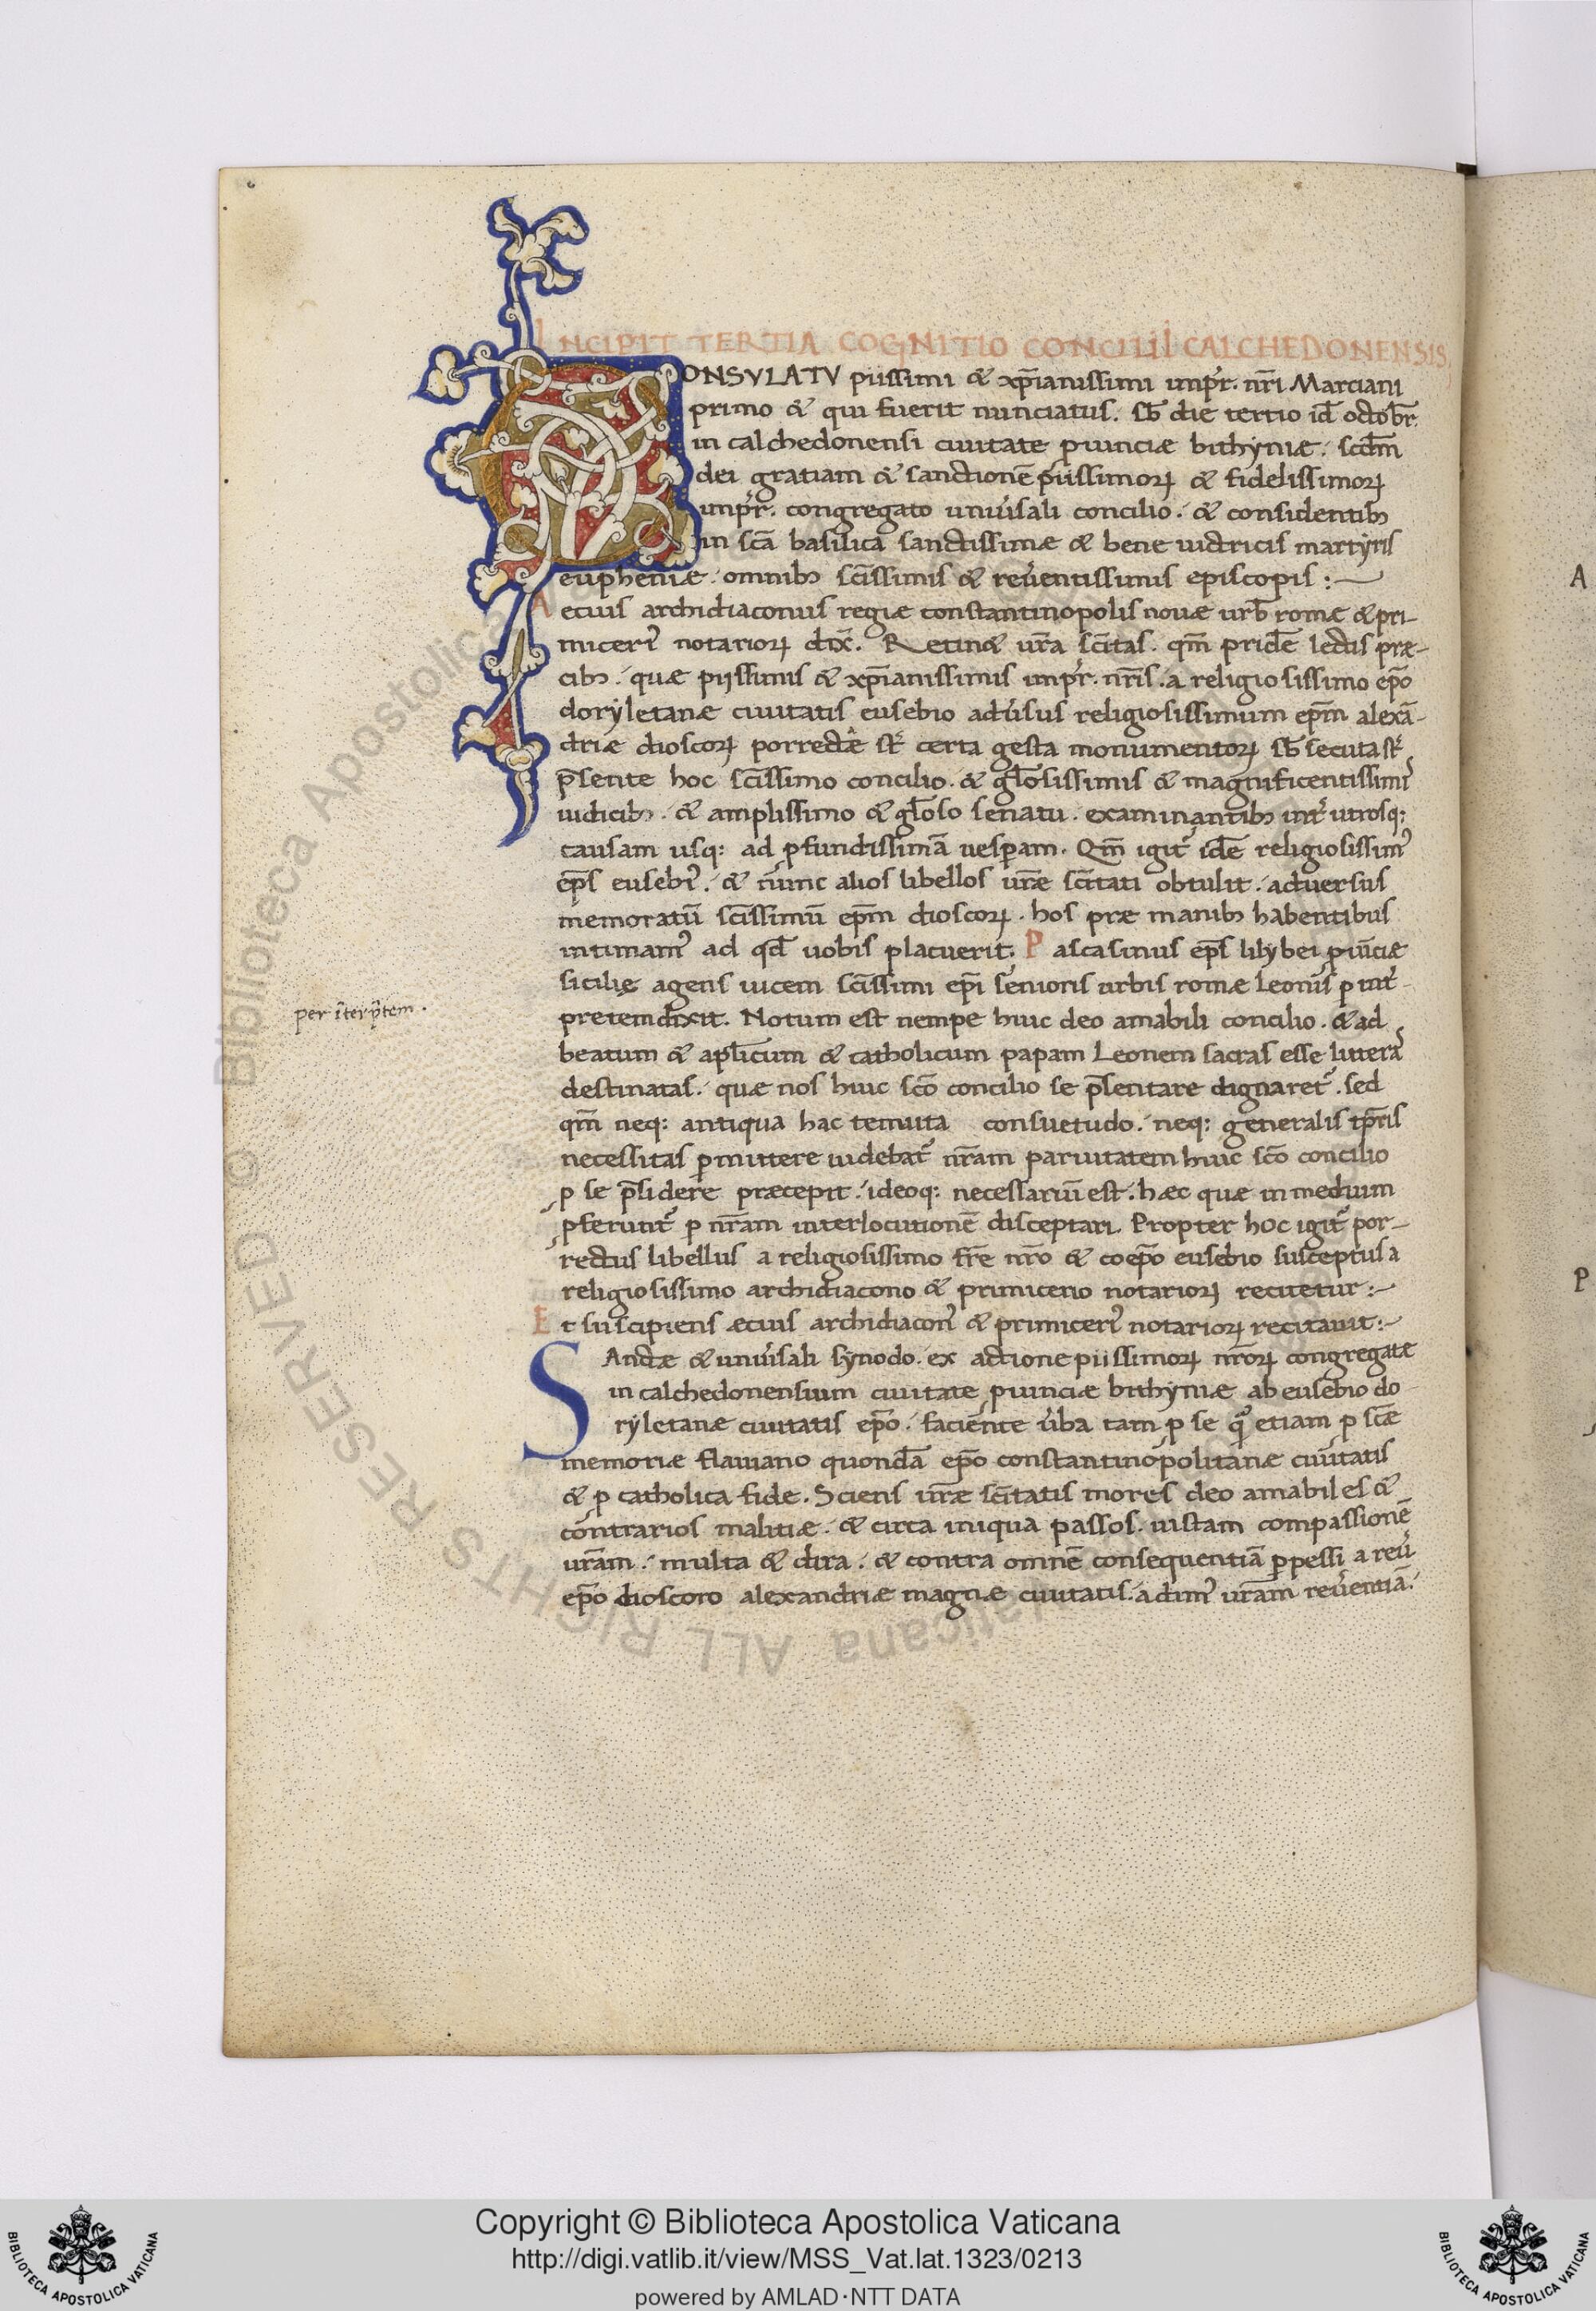 INCIPIT TERTIA COGNITIO CONCILII CALCHEDONENSIS
CONSVLATV piissimi & xp̄ianissimi imꝑr. nr̄i Marciani
primo & qui fuerit nunciatus. sb̄ die tertio id̄ octobr̄.
in calchedonensi ciuitate ꝓuinciæ bithyniæ. scd̄m
dei gratiam & sanctionē piissimoꝝ & fidelissimoꝝ
imꝑr. congregato uniu̓sali concilio. & considentib;
in sc̄a basilica sanctissimæ & bene uictricis martyris
eupheniæ. omnib; sc̄issimis & reu̓entissimis episcopis :—
Aetius archidiaconus regiæ constantinopolis nouæ urb̄ romæ & pri-
miceriꝰ notarioꝝ dix̄. Retin& ur̄a sc̄itas. qm̄ pridē lectis præ-
cib;. quæ pijssimis & xp̄ianissimis imꝑr. nr̄is. a religiosissimo ep̄o
doryletanæ ciuitatis eusebio adu̓sus religiosissimum ep̄m alexā-
driæ dioscoꝝ porrectæ st̄ certa gesta monumentoꝝ sb̄secuta st̄
p̄sente hoc sc̄issimo concilio. & gl̄osissimis & magnificentissimis
iudicib;. & amplissimo & gl̄oso senatu. examinantib; int̓ utrosq;
causam usq; ad ꝓfundissimā uesꝑam. Qm̄ igit̓ idē religiosissimꝰ
ep̄s eusebiꝰ. & nunc alios libellos ur̄æ sc̄itati obtulit. aduersus
memoratū sc̄issimū ep̄m dioscoꝝ. hos præ manib; habentibus
intimamꝰ ad qd̄ uobis placuerit. Pascasinus ep̄s lilybei ꝓuīciæ
sicilię agens uicem sc̄issimi ep̄i senioris urbis romæ Leonis ꝑ int̓-
pretem dixit. Notum est nempe huic deo amabili concilio. & ad
per īterp̄tem.
beatum & apl̄icum & catholicum papam Leonem sacras esse litteras
destinatas. quæ nos huic sc̄o concilio se p̄sentare dignaret̓. sed
qm̄ neq; antiqua hac temuta consuetudo. neq; generalis tp̄ris
necessitas ꝑmittere uidebat̓ nr̄am paruitatem huic sc̄o concilio
ꝑ se p̄sidere præcepit. ideoq; necessariū est. hæc quæ in medium
ꝓferunt̓ ꝑ nr̄am interlocutionē disceptari. Propter hoc igit̓ por-
rectus libellus a religiosissimo fr̄e nr̄o & coep̄o eusebio susceptus a
religiosissimo archidiacono & primicerio notarioꝝ recitetur :-
Et suscipiens aetius archidiaconꝰ & primiceriꝰ notarioꝝ recitauit :-
SAnctæ & uniu̓sali synodo. ex actione piissimoꝝ nr̄oꝝ congregatæ
in calchedonensium ciuitate ꝓuinciæ bithyniæ ab eusebio do-
ryletanæ ciuitatis ep̄o. faciente u̓ba tam ꝑ se qͦ etiam ꝑ sc̄æ
memoriæ flauiano quondā ep̄o constantinopolitanæ ciuitatis
& ꝑ catholica fide. Sciens ur̄æ sc̄itatis mores deo amabiles &
contrarios malitiæ. & circa iniqua passos. iustam compassionē
ur̄am. multa & dira. & contra omnē consequentiā ꝑpessi a reu̓
ep̄o dioscoro alexandriæ magnæ ciuitatis. adimꝰ ur̄am reu̓entiā.
A
P
Copyright © Biblioteca Apostolica Vaticana
http://digi.vatlib.it/view/MSS_Vat.lat.1323/0213
powered by AMLAD·NTT DATA
BIBLIOTECA APOSTOLICA VATICANA
BIBLIOTECA APOSTOLICA VATICANA